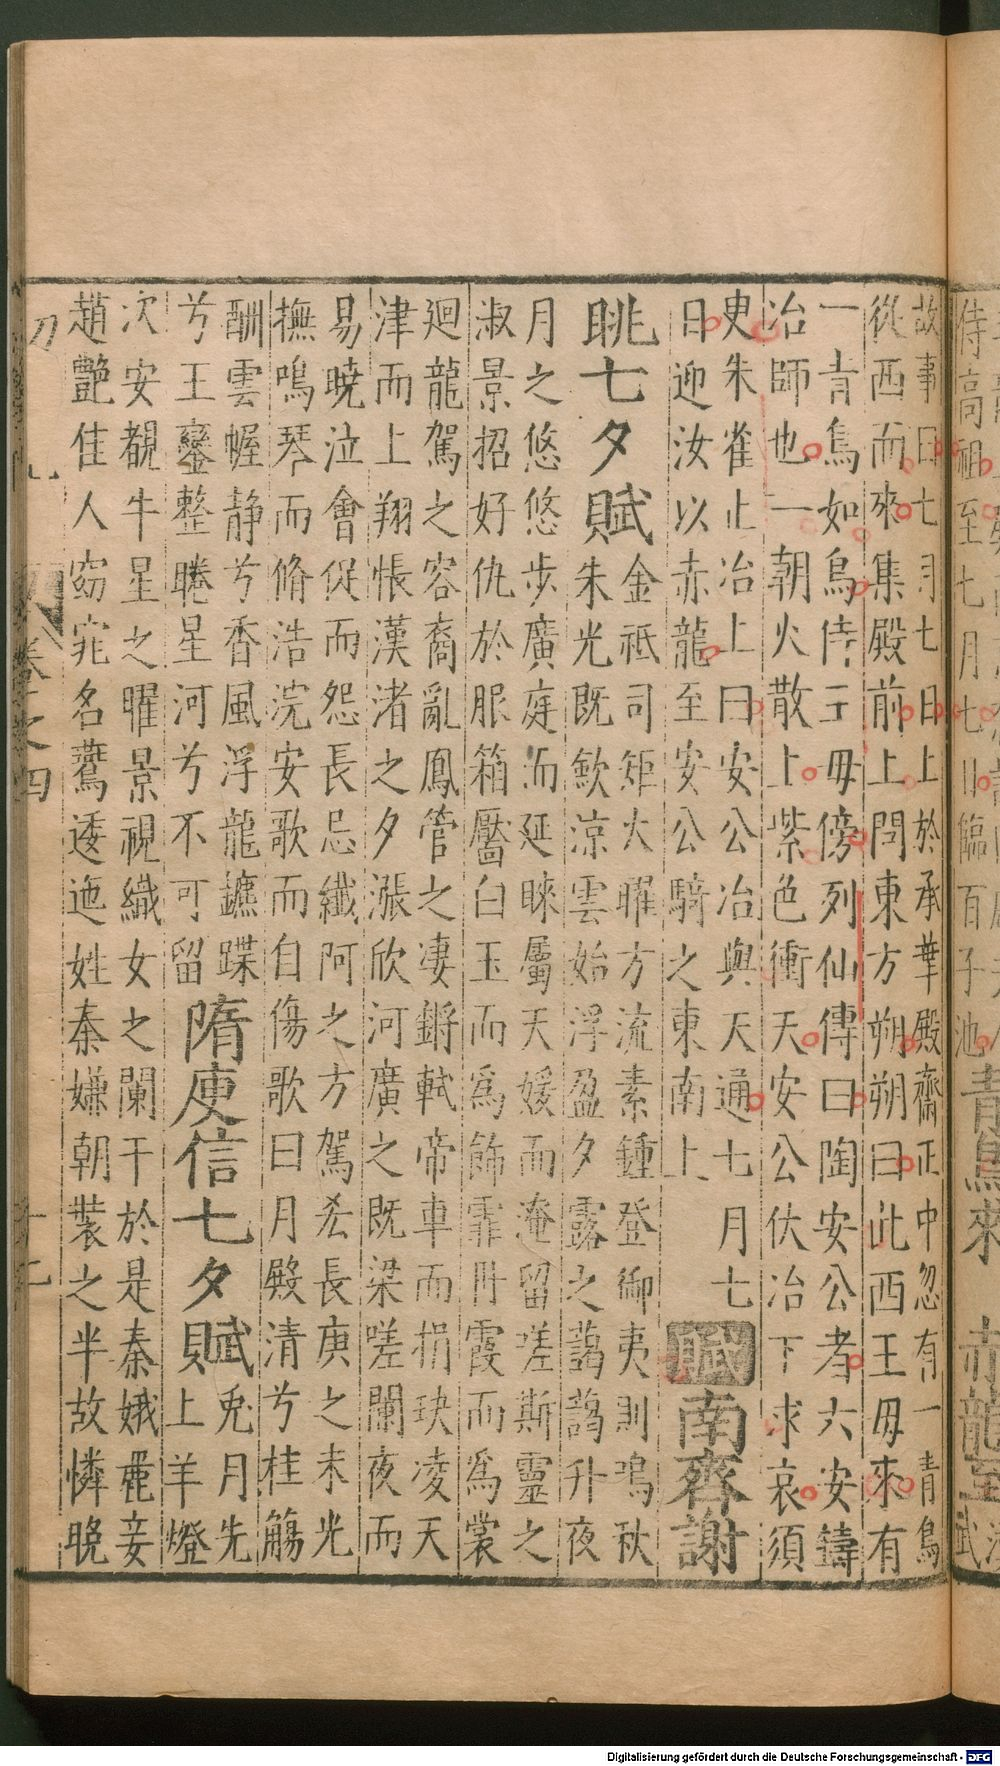 侍高祖至七月七日臨百子池
青鳥來 赤龍至
武
故事曰七月七日上於承華殿齋正中忽有一青鳥
從西而來集殿前上問東方朔朔曰此西王母來有
一青鳥如烏侍王母傍列仙傳曰陶安公者六安鑄
冶師也一朝火散上紫色衝天安公伏冶下求哀須
臾朱雀止冶上曰安公冶與天通七月七
日迎汝以赤龍至安公騎之東南上
賦南齊謝
朓七夕賦
金祗司矩火曜方流素鍾登御夷則鳴秋
朱光既歛涼雲始浮盈夕露之藹藹升夜
月之悠悠步廣庭而延睞屬天媛而淹留嗟斯靈之
淑景招好仇於服箱靨白玉而為飾霏丹霞而為裳
廻龍駕之容裔亂鳳管之凄鏘軾帝車而捐玦凌天
津而上翔悵漢渚之夕漲欣河廣之既梁嗟闌夜而
易曉泣會促而怨長忌纖阿之方駕恡長庚之未光
撫鳴琴而脩浩浣安歌而自傷歌曰月殿清兮桂觴
酬雲幄静兮香風浮龍鑣蹀
兮玉鑾整睠星河兮不可留
隋庾信七夕賦
兔月先
上羊燈
次安覩牛星之曜景視織女之闌干於是秦娥麗妾
趙艷佳人窈窕名鷰逶迤姓秦嫌朝裝之半故憐晚
卷之四
十二
Digitalisierung gefördert durch die Deutsche Forschungsgemeinschaft - DFG